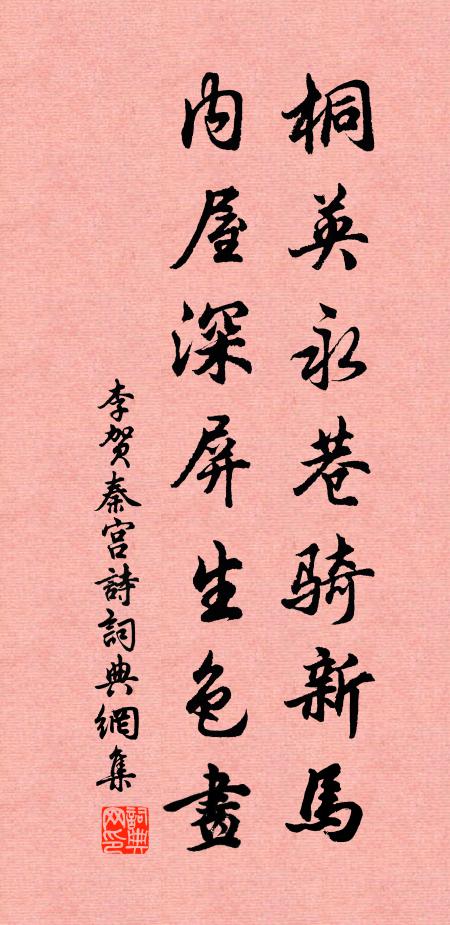 桐英永巷骑新馬
内屋深屏生色畫
李贺秦宫詩詞典網集
詞典網印